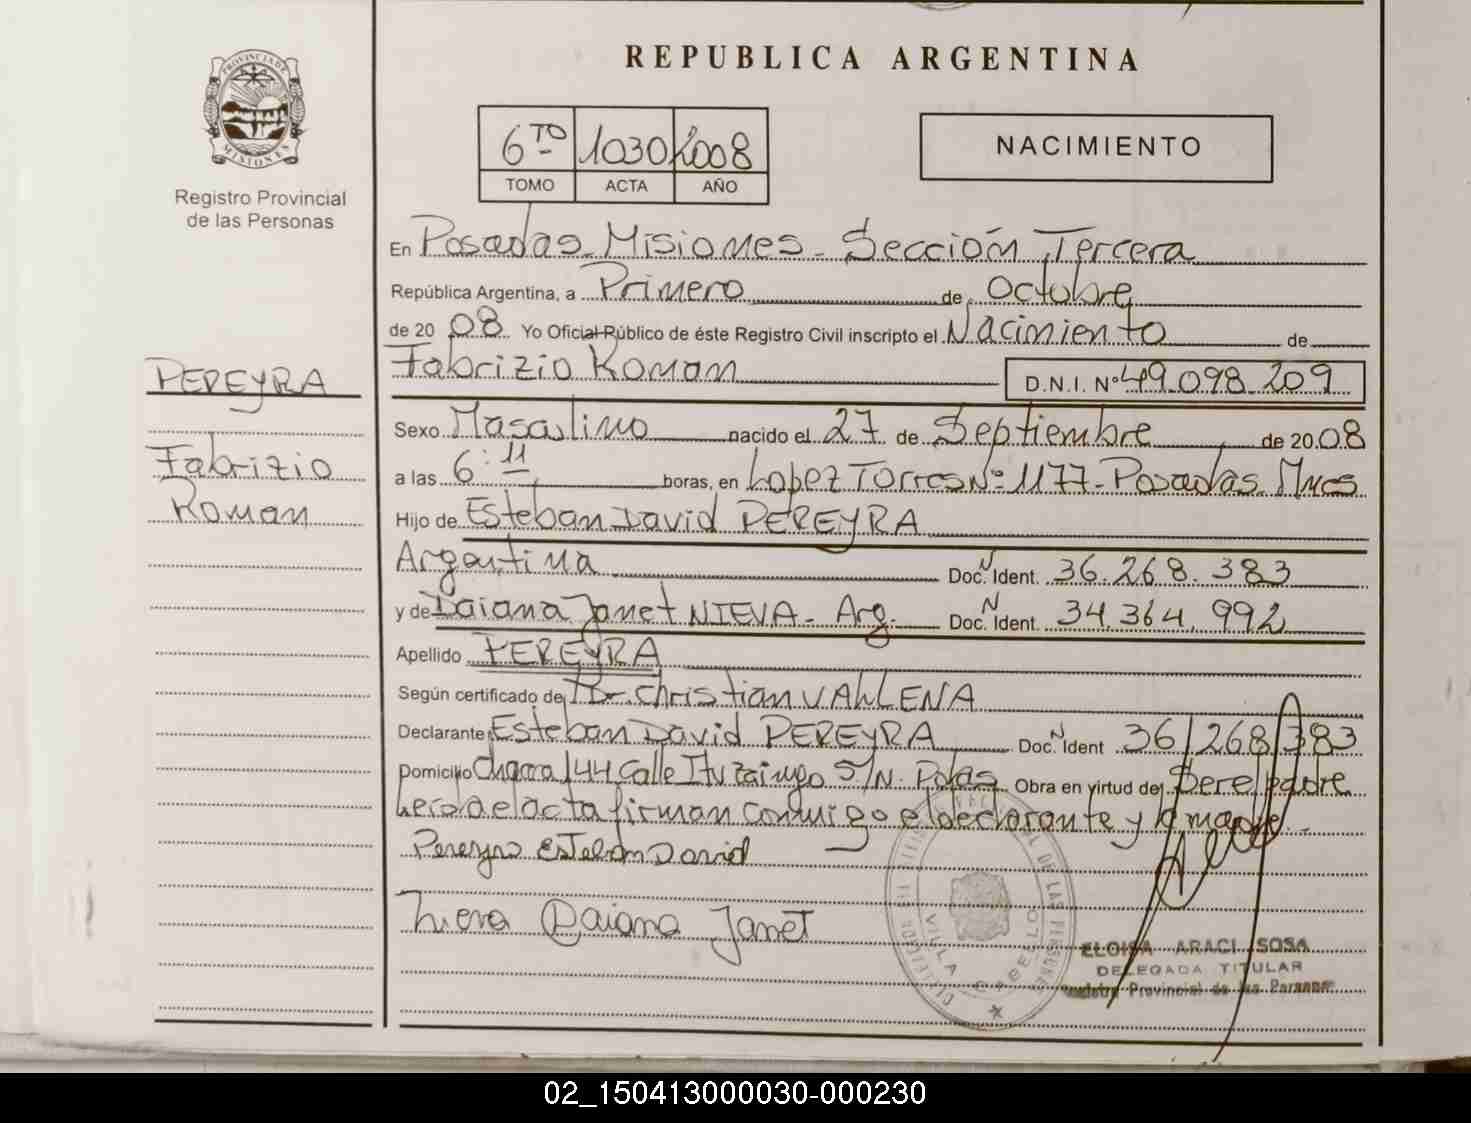 REPUBLICA ARGENTINA
PROVINCIA DE
MISIONES
Registro Provincial
de las Personas
6TO 1030 2008
TOMO ACTA AÑO
NACIMIENTO
En Posadas Misiones - Sección Tercera
República Argentina, a Primero de Octubre
de 20 08 Yo Oficial Público de éste Registro Civil inscripto el Nacimiento de
Fabrizio Roman D.N.I. Nº 49.098.209
PEREYRA
Fabrizio
Roman
Sexo Masculino nacido el 27 de Septiembre de 20 08
a las 6:11 horas, en Lopez Torres Nº 1177 - Posadas Mnes
Hijo de Esteban David PEREYRA
Argentina Doc. N Ident. 36.268.383
y de Daiana Janet NIEVA - Arg. Doc. N Ident. 34.364.992
Apellido PEREYRA
Según certificado de Dr. Christian VAHLENA
Declarante Esteban David PEREYRA Doc. N Ident 36/268/383
Domicilio Chacra 144 Calle Ituzaingo S/N. Pdas Obra en virtud de Ser el padre
el acta firman conmigo el declarante y la madre
Pereyra Esteban David
Nieva Daiana Janet
VILLA CABELLO
ELOISA ARACI SOSA
DELEGADA TITULAR
Registro Provincial de las Personas
02_150413000030-000230